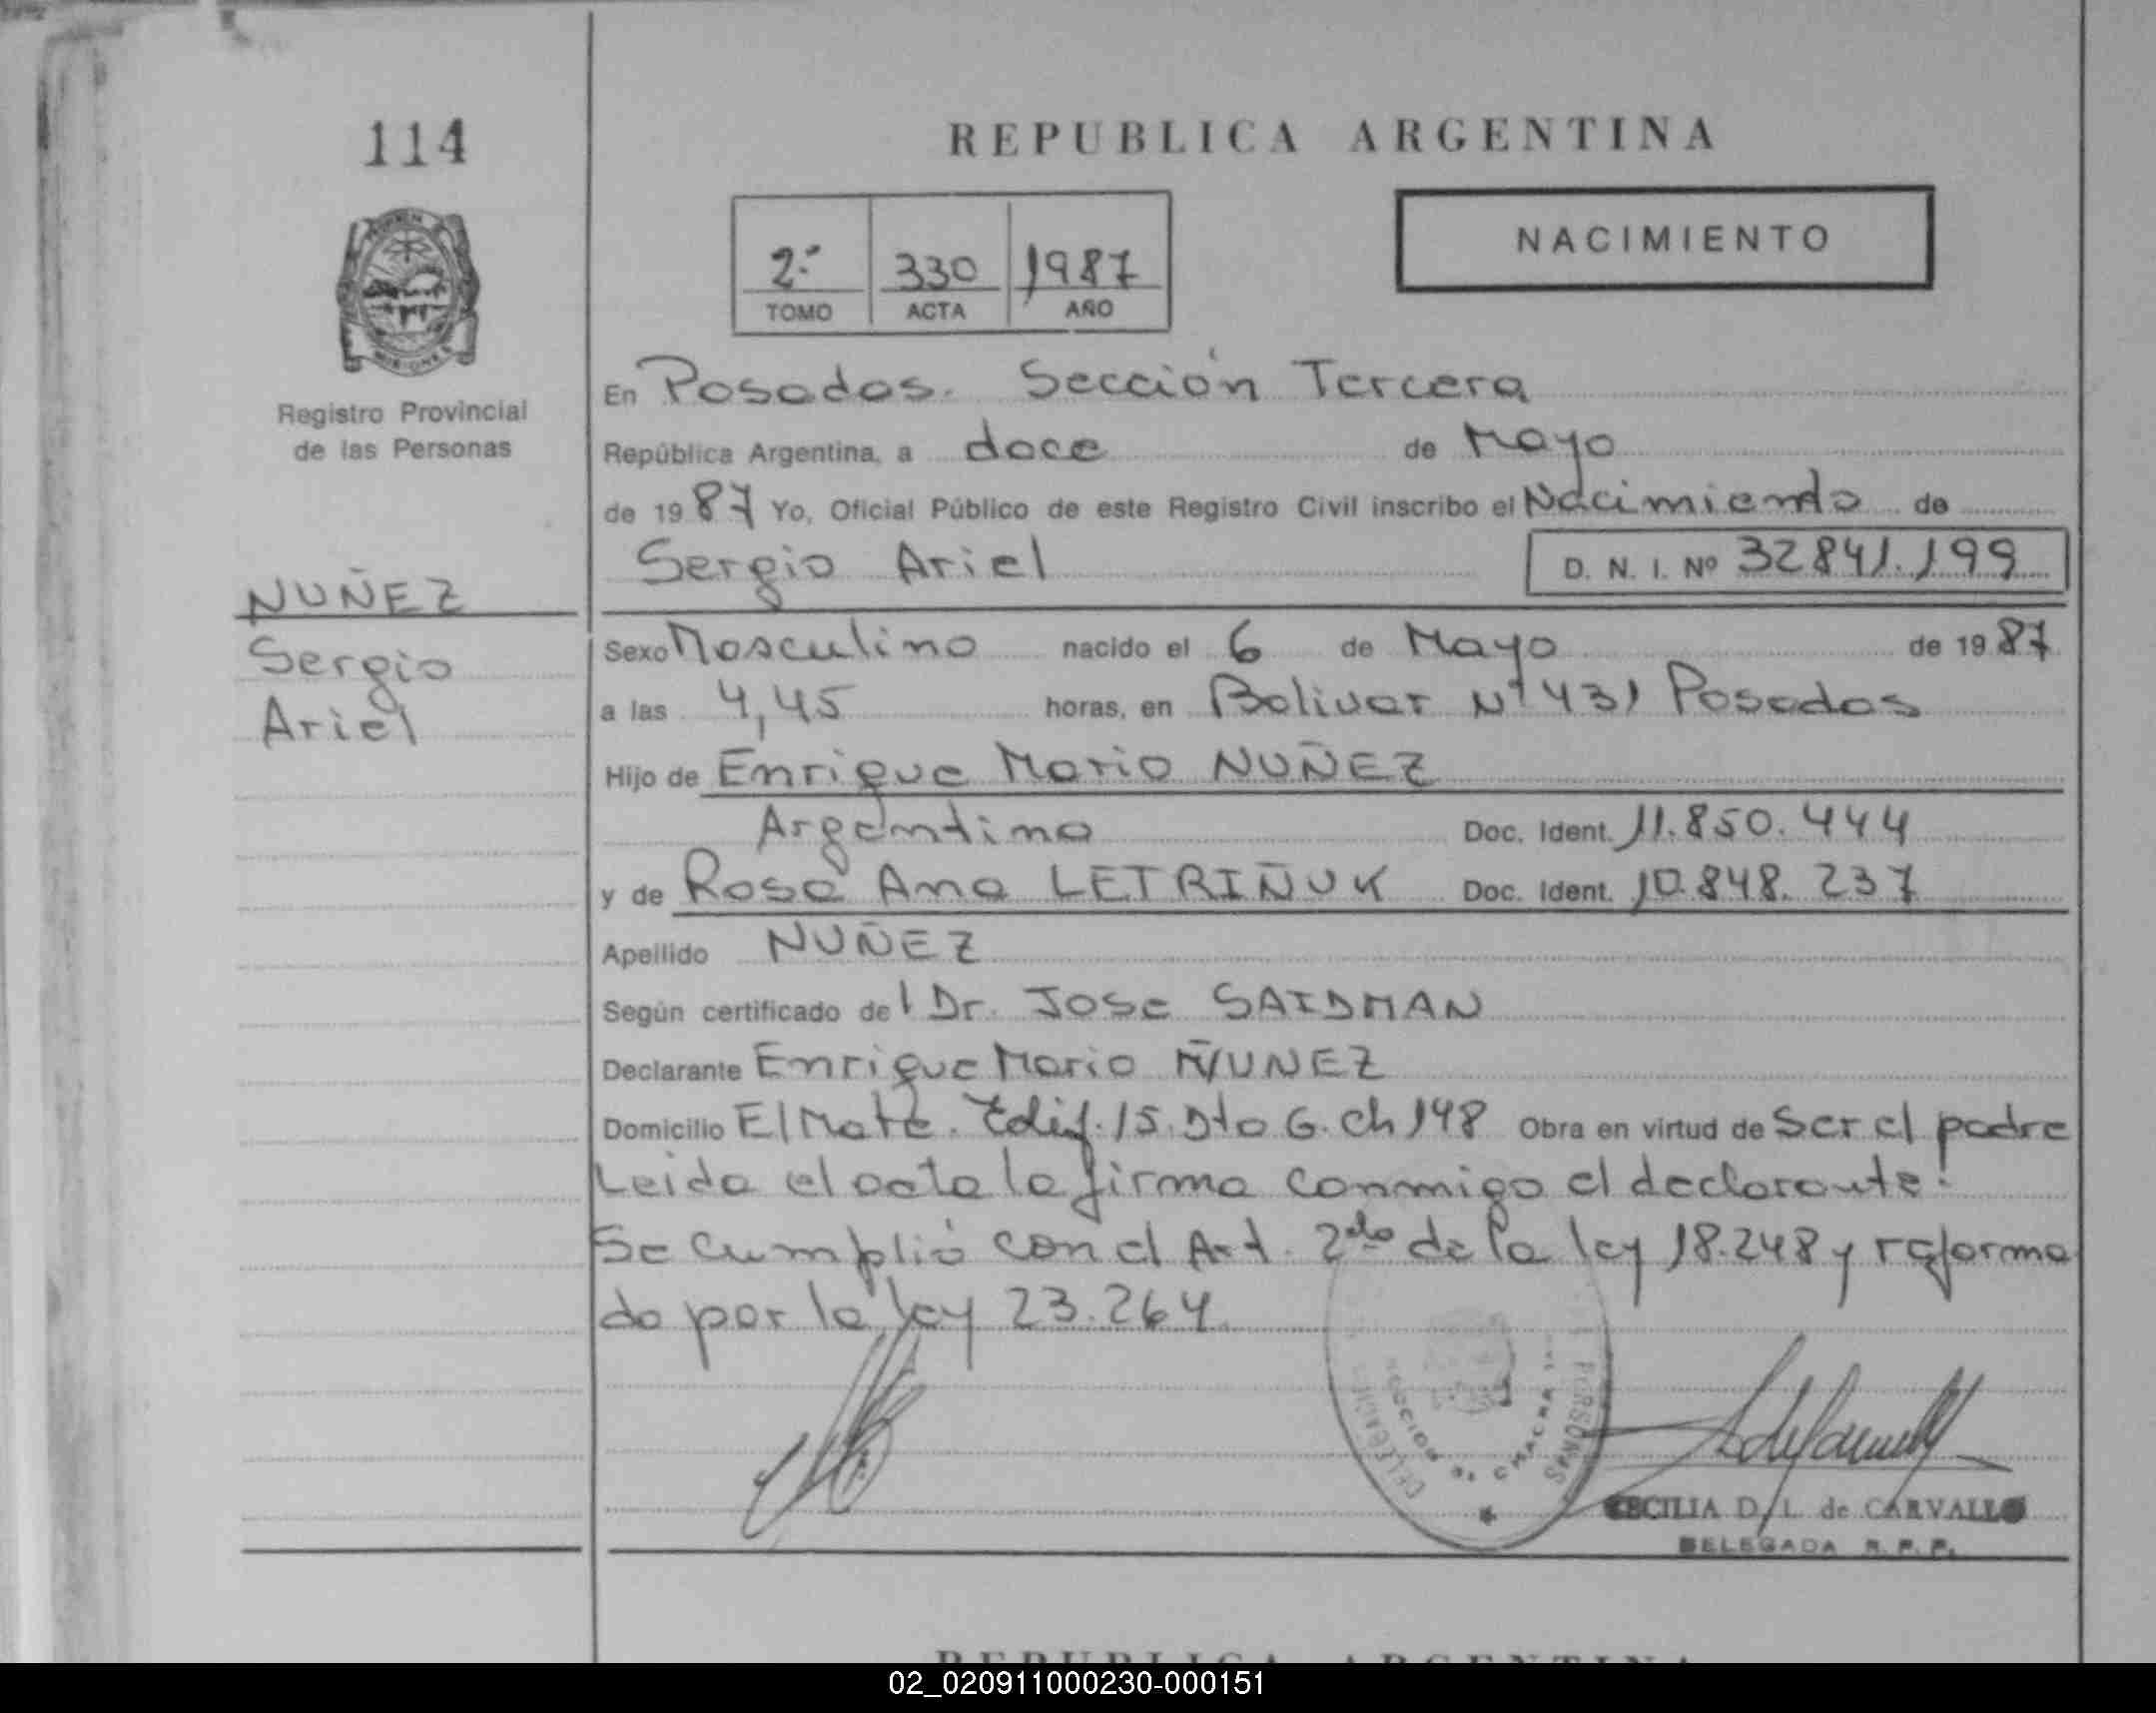 114
REPUBLICA ARGENTINA
2º 330 1987
TOMO ACTA AÑO
NACIMIENTO
Registro Provincial
de las Personas
En Posadas. Sección Tercera
República Argentina, a doce de Mayo
de 1987 Yo, Oficial Público de este Registro Civil inscribo el Nacimiento de
Sergio Ariel D. N. I. Nº 32841.199
NUÑEZ
Sergio
Ariel
Sexo Masculino nacido el 6 de Mayo de 1987
a las 4,45 horas, en Bolivar Nº 431 Posadas
Hijo de Enrique Mario NUÑEZ
Argentino Doc. Ident. 11.850.444
y de Rosa Ana LETRIÑUK Doc. Ident. 10.848.237
Apellido NUÑEZ
Según certificado del Dr. JOSE SAIDMAN
Declarante Enrique Mario ÑUNEZ
Domicilio El Mate. Edif. 15. Dto 6. Ch 148 Obra en virtud de Ser el padre
Leida el acta la firma conmigo el declarante!
Se cumplió con el Art. 2do de la ley 18.248 y reforma
do por la ley 23.264.
DELEGACION
PERSONAS
SECCION CHACRA
CECILIA D. L. de CARVALLO
DELEGADA R. P. P.
REPUBLICA ARGENTINA
02_020911000230-000151